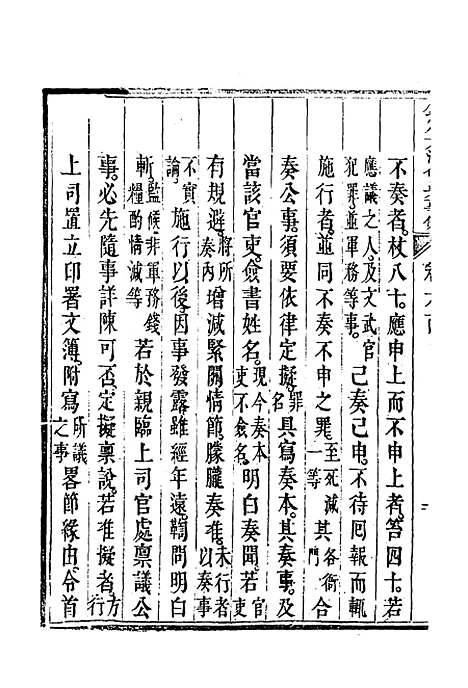 不奏者。杖八十。應申上而不申上者。笞四十。若
應議之人。及文武官犯罪。並軍務等事。已奏已申。不待囘報而輒
施行者。並同不奏不申之罪。至死減一等其各衙門合
奏公事。須要依律定擬罪名具寫奏本。其奏事。及
當該官吏。僉書姓名。現今奏本吏不僉名。明白奏聞。若官吏
有規避。將所奏內增減緊關情節。朦朧奏准。未行者以奏事
不實論施行以後。因事發露。雖經年遠。鞫問明白
斬。監候非軍務錢糧酌情減等若於親臨上司官處稟議公
事。必先隨事詳陳可否。定擬稟說。若准擬者。方行
上司置立印署文簿。附寫所議之事畧節緣由。令首